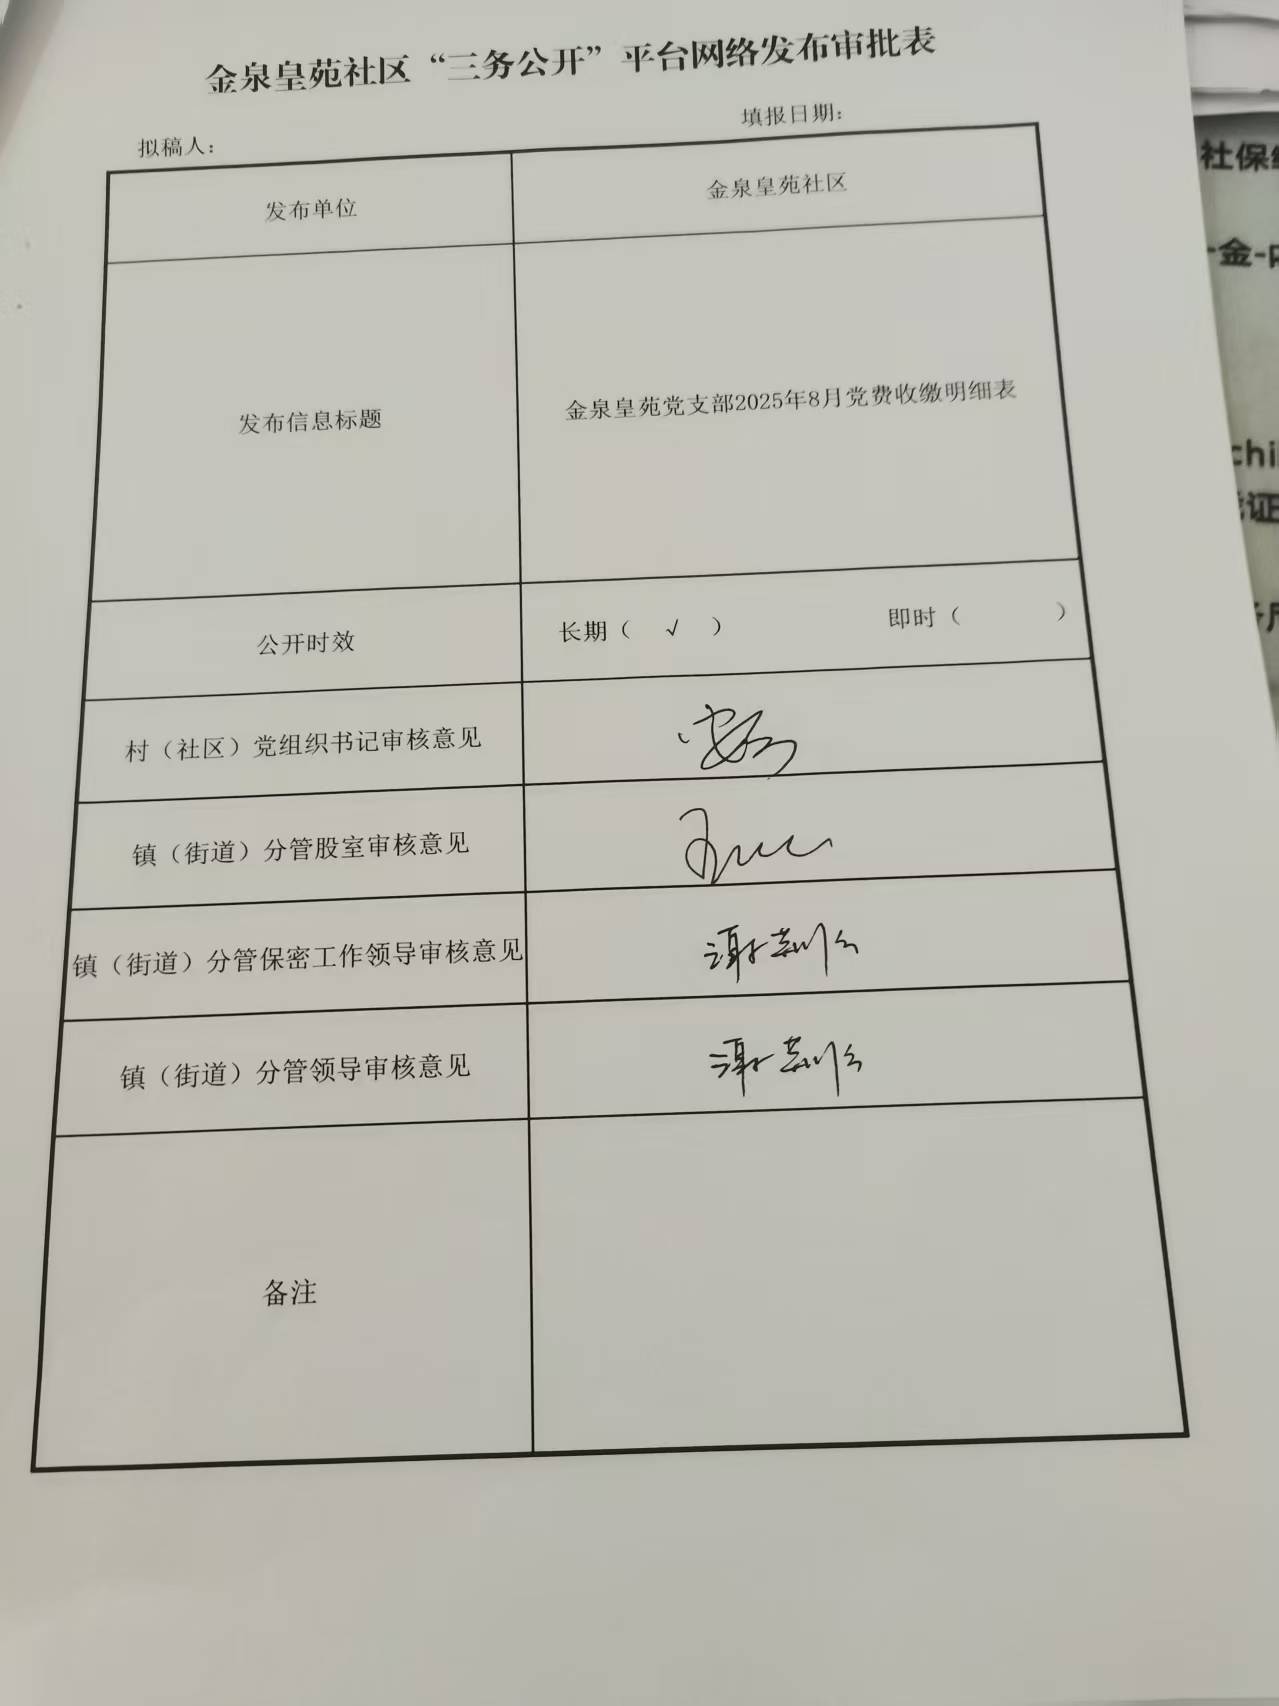 金泉皇苑社区“三务公开”平台网络发布审批表
拟稿人： 填报日期：
发布单位 金泉皇苑社区
发布信息标题 金泉皇苑党支部2025年8月党费收缴明细表
公开时效 长期（ √ ） 即时（ ）
村（社区）党组织书记审核意见
镇（街道）分管股室审核意见
镇（街道）分管保密工作领导审核意见
镇（街道）分管领导审核意见
备注
社保
-金-
chi
证